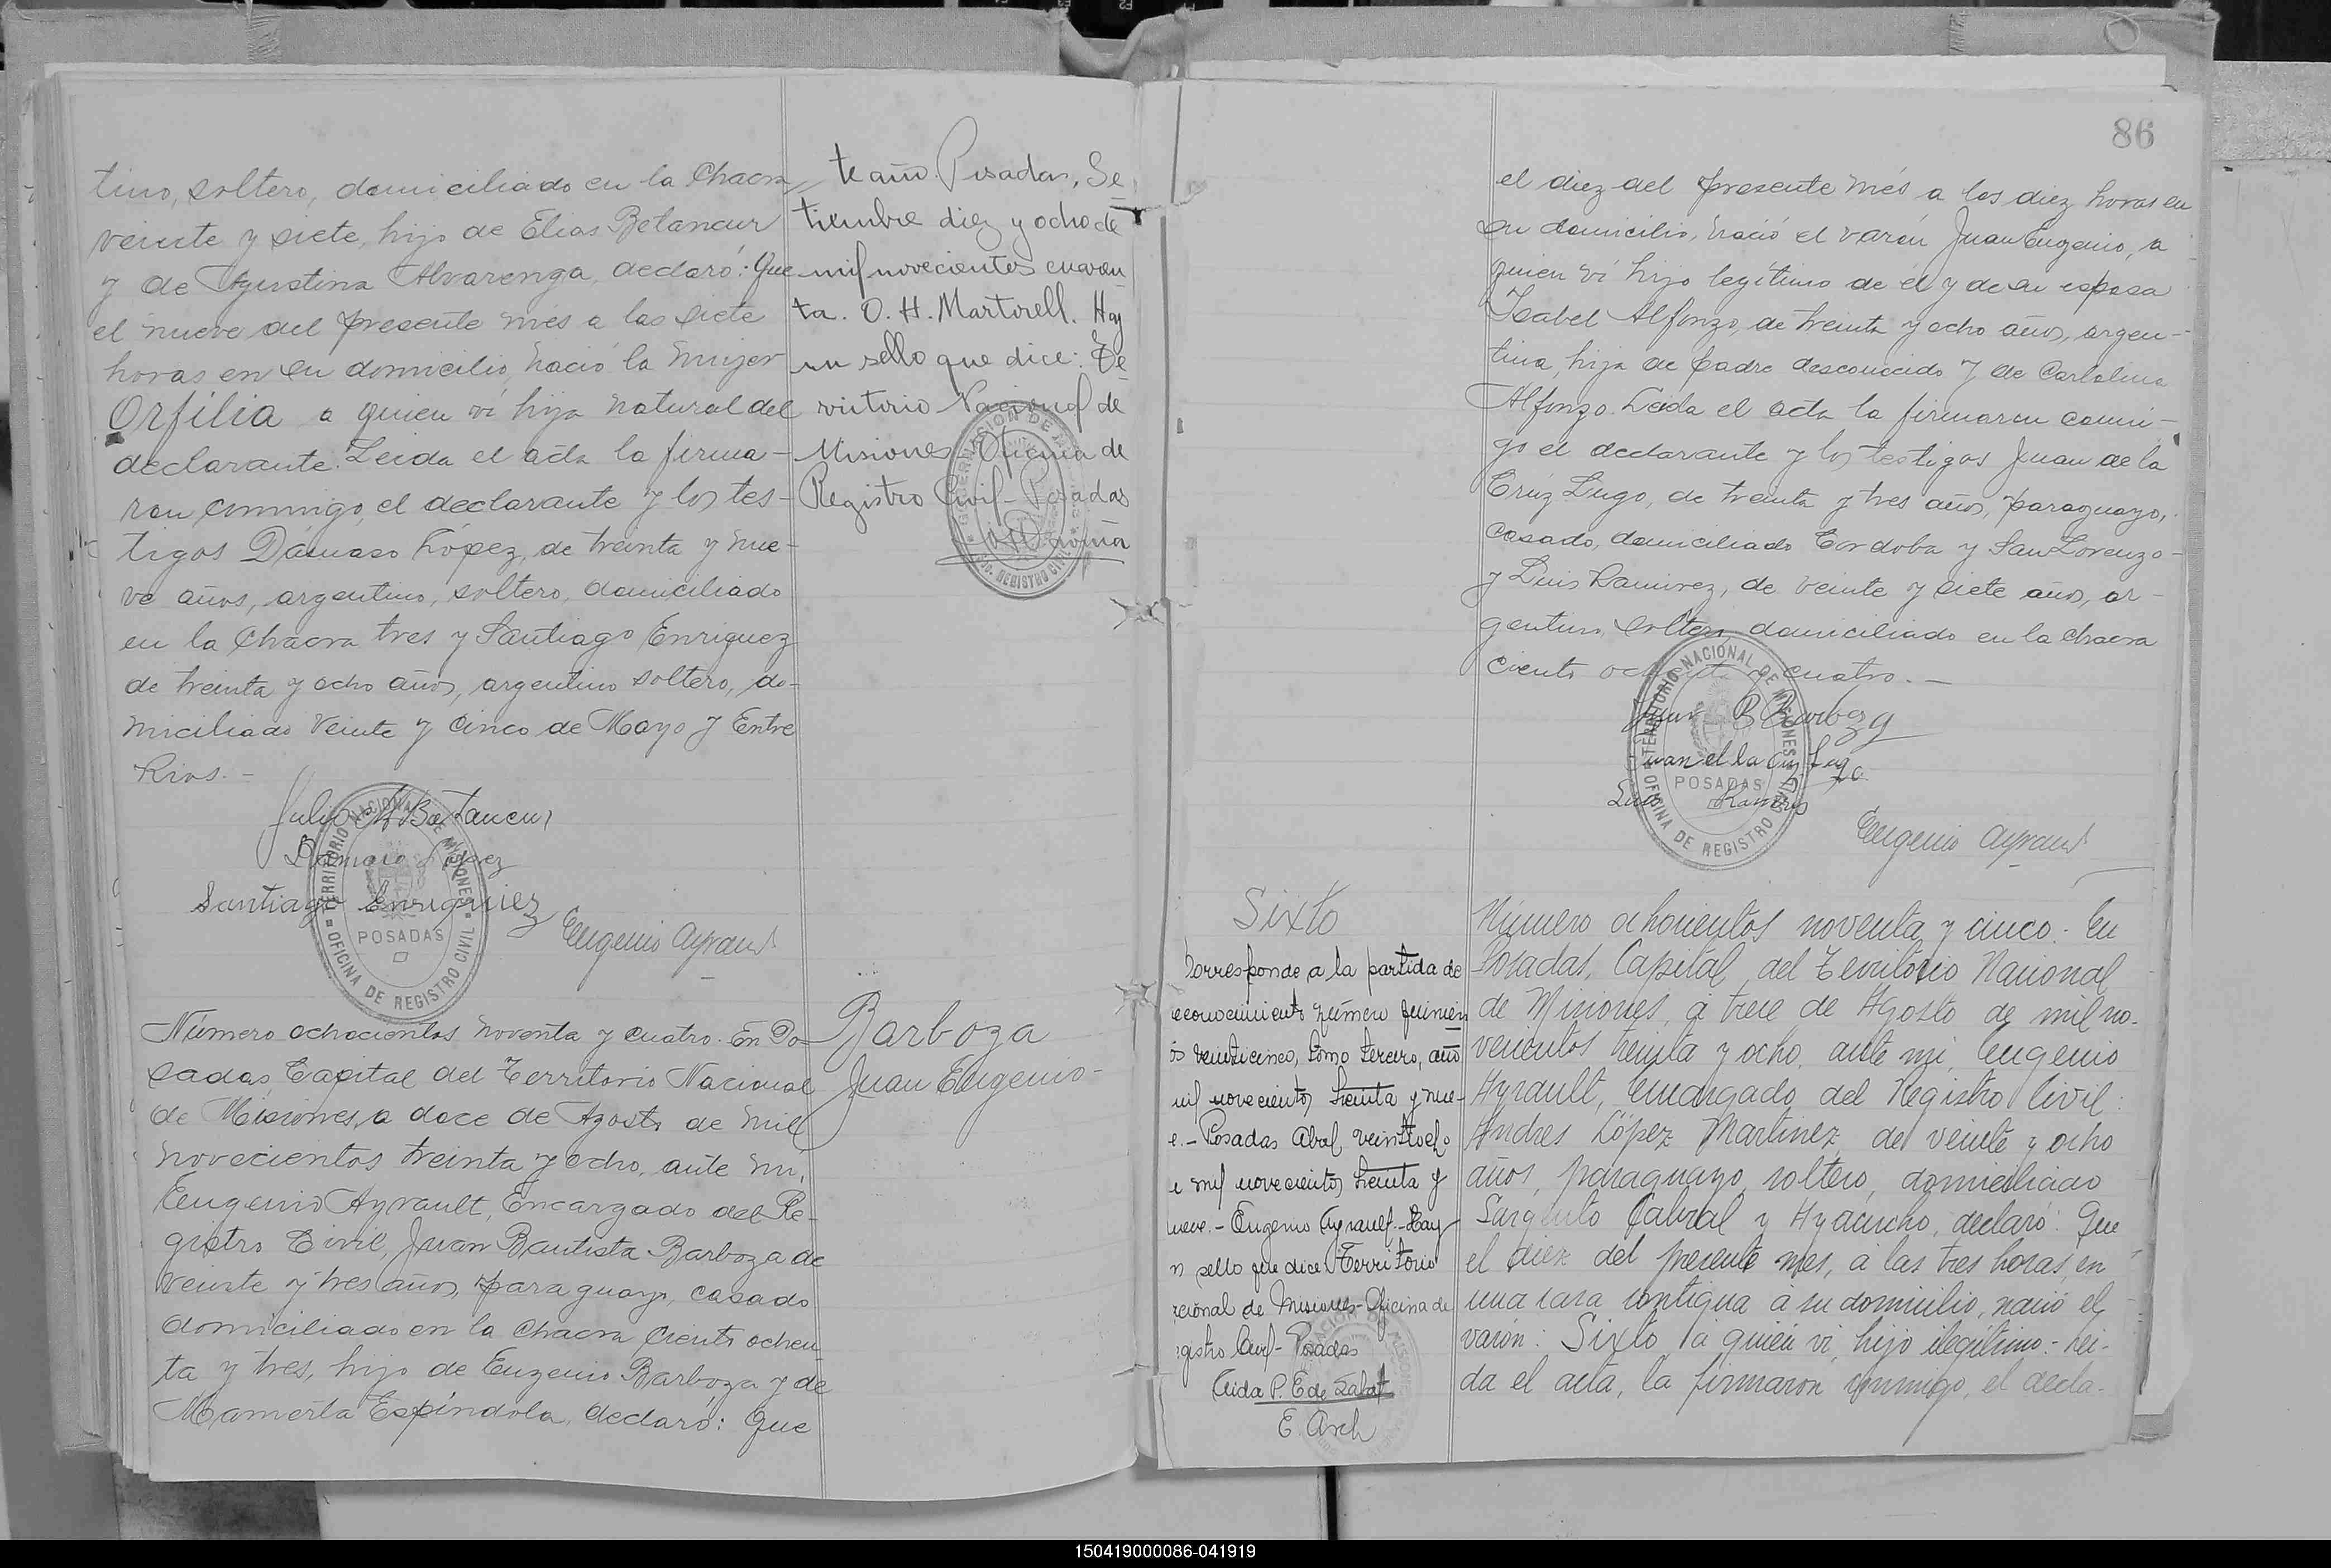 tino, soltero, domiciliado en la Chacra
veinte y siete, hijo de Elias Betancur
y de Agustina Alvarenga, declaró: Que
el nueve del presente més a las siete
horas en su domicilio, nació la mujer
Orfilia a quien vi hija natural del
declarante. Leida el acta la firma-
ron conmigo, el declarante y los tes-
tigos Dámaso López, de treinta y nue-
ve años, argentino, soltero, domiciliado
en la Chacra tres y Santiago Enriquez
de treinta y ocho años, argentino soltero, do-
miciliado Veinte y Cinco de Mayo y Entre
Rios.-
Julio A Betancur
Damaso López
Santiago Enriquiez
Eugenio Ayrault
TERRITORIO NACIONAL DE MISIONES
POSADAS
OFICINA DE REGISTRO CIVIL
Número ochocientos noventa y cuatro. En Po-
sadas, Capital del Territorio Nacional
de Misiones, a doce de Agosto de mil
novecientos treinta y ocho, ante mí,
Eugenio Ayrault, Encargado del Re-
gistro Civil, Juan Bautista Barboza de
veinte y tres años, paraguayo, casado
domiciliado en la Chacra ciento ochen-
ta y tres, hijo de Eugenio Barboza y de
Mamerta Espíndola, declaró: Que
te año. Posadas, Se-
tiembre diez y ocho de
mil novecientos cuaren
ta. O. H. Martorell. Hay
un sello que dice: Te-
rritorio Nacional de
Misiones Oficina de
Registro Civil- Posadas
GOBERNACION DE
REGISTRO CIVIL
Barboza
Juan Eugenio-
86
el diez del presente més a las diez horas en
su domicilio, nació el varón Juan Eugenio, a
quien vi hijo legítimo de él y de su esposa
Isabel Alfonzo, de treinta y ocho años, argen-
tina, hija de padre desconocido y de Carlolina
Alfonzo. Leida el acta la firmaron conmi-
go el declarante y los testigos Juan de la
Cruz Lugo, de treinta y tres años, paraguayo,
casado, domiciliado Cordoba y San Lorenzo-
y Luis Ramirez, de veinte y siete años, ar-
gentino, soltero, domiciliado en la chacra
ciento ochenta y cuatro.-
Juan B Barboza
Juan de la Cruz Lugo
Luis Ramires
Eugenio Ayrault
TERRITORIO NACIONAL DE MISIONES
POSADAS
OFICINA DE REGISTRO CIVIL
Sixto
Corresponde a la partida de
reconocimiento número quinien
os veinticinco, tomo tercero, año
mil novecientos treinta y nue-
e.- Posadas Abril veintiocho
e mil novecientos treinta y
nueve.- Eugenio Ayrault.- Hay
n sello que dice: Territorio
acional de Misiones- Oficina de
egistro Civil- Posadas
Aida P. E de Sabat
Número ochocientos noventa y cinco. En
Posadas, Capital del Territorio Nacional
de Misiones, á trece de Agosto de mil no-
vecientos treinta y ocho, ante mi, Eugenio
Ayrault, Encargado del Registro Civil:
Andres López Martinez, de veinte y ocho
años, paraguayo, soltero, domiciliado
Sargento Cabral y Ayacucho, declaró: Que
el diez del presente mes, á las tres horas, en
una casa contigua á su domicilio, nació el
varón: Sixto, á quien vi, hijo ilegítimo.- Lei-
da el acta, la firmaron conmigo, el decla-
150419000086-041919